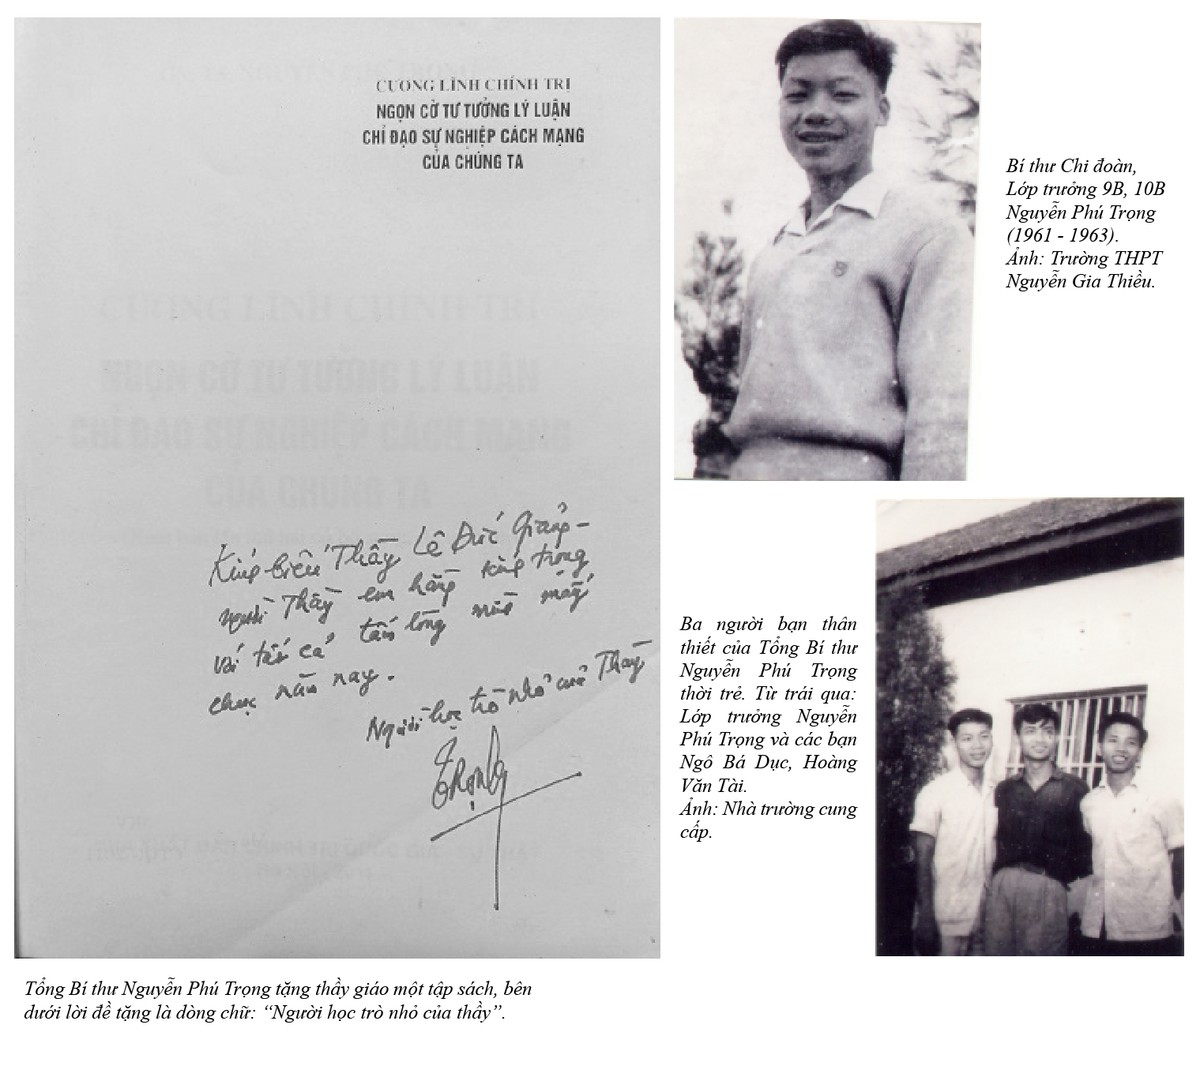 CƯƠNG LĨNH CHÍNH TRỊ
NGỌN CỜ TƯ TƯỞNG LÝ LUẬN
CHỈ ĐẠO SỰ NGHIỆP CÁCH MẠNG
CỦA CHÚNG TA
CƯƠNG LĨNH CHÍNH TRỊ
NGỌN CỜ TƯ TƯỞNG LÝ LUẬN
CHỈ ĐẠO SỰ NGHIỆP CÁCH MẠNG
CỦA CHÚNG TA
Kính biếu Thầy Lê Đức Giảng -
người Thầy em hằng kính trọng
với tất cả tấm lòng mình mấy
chục năm nay.
Người học trò nhỏ của Thầy
Trọng
Tổng Bí thư Nguyễn Phú Trọng tặng thầy giáo một tập sách, bên
dưới lời đề tặng là dòng chữ: “Người học trò nhỏ của thầy”.
Bí thư Chi đoàn,
Lớp trưởng 9B, 10B
Nguyễn Phú Trọng
(1961 - 1963).
Ảnh: Trường THPT
Nguyễn Gia Thiều.
Ba người bạn thân
thiết của Tổng Bí thư
Nguyễn Phú Trọng
thời trẻ. Từ trái qua:
Lớp trưởng Nguyễn
Phú Trọng và các bạn
Ngô Bá Dục, Hoàng
Văn Tài.
Ảnh: Nhà trường cung
cấp.